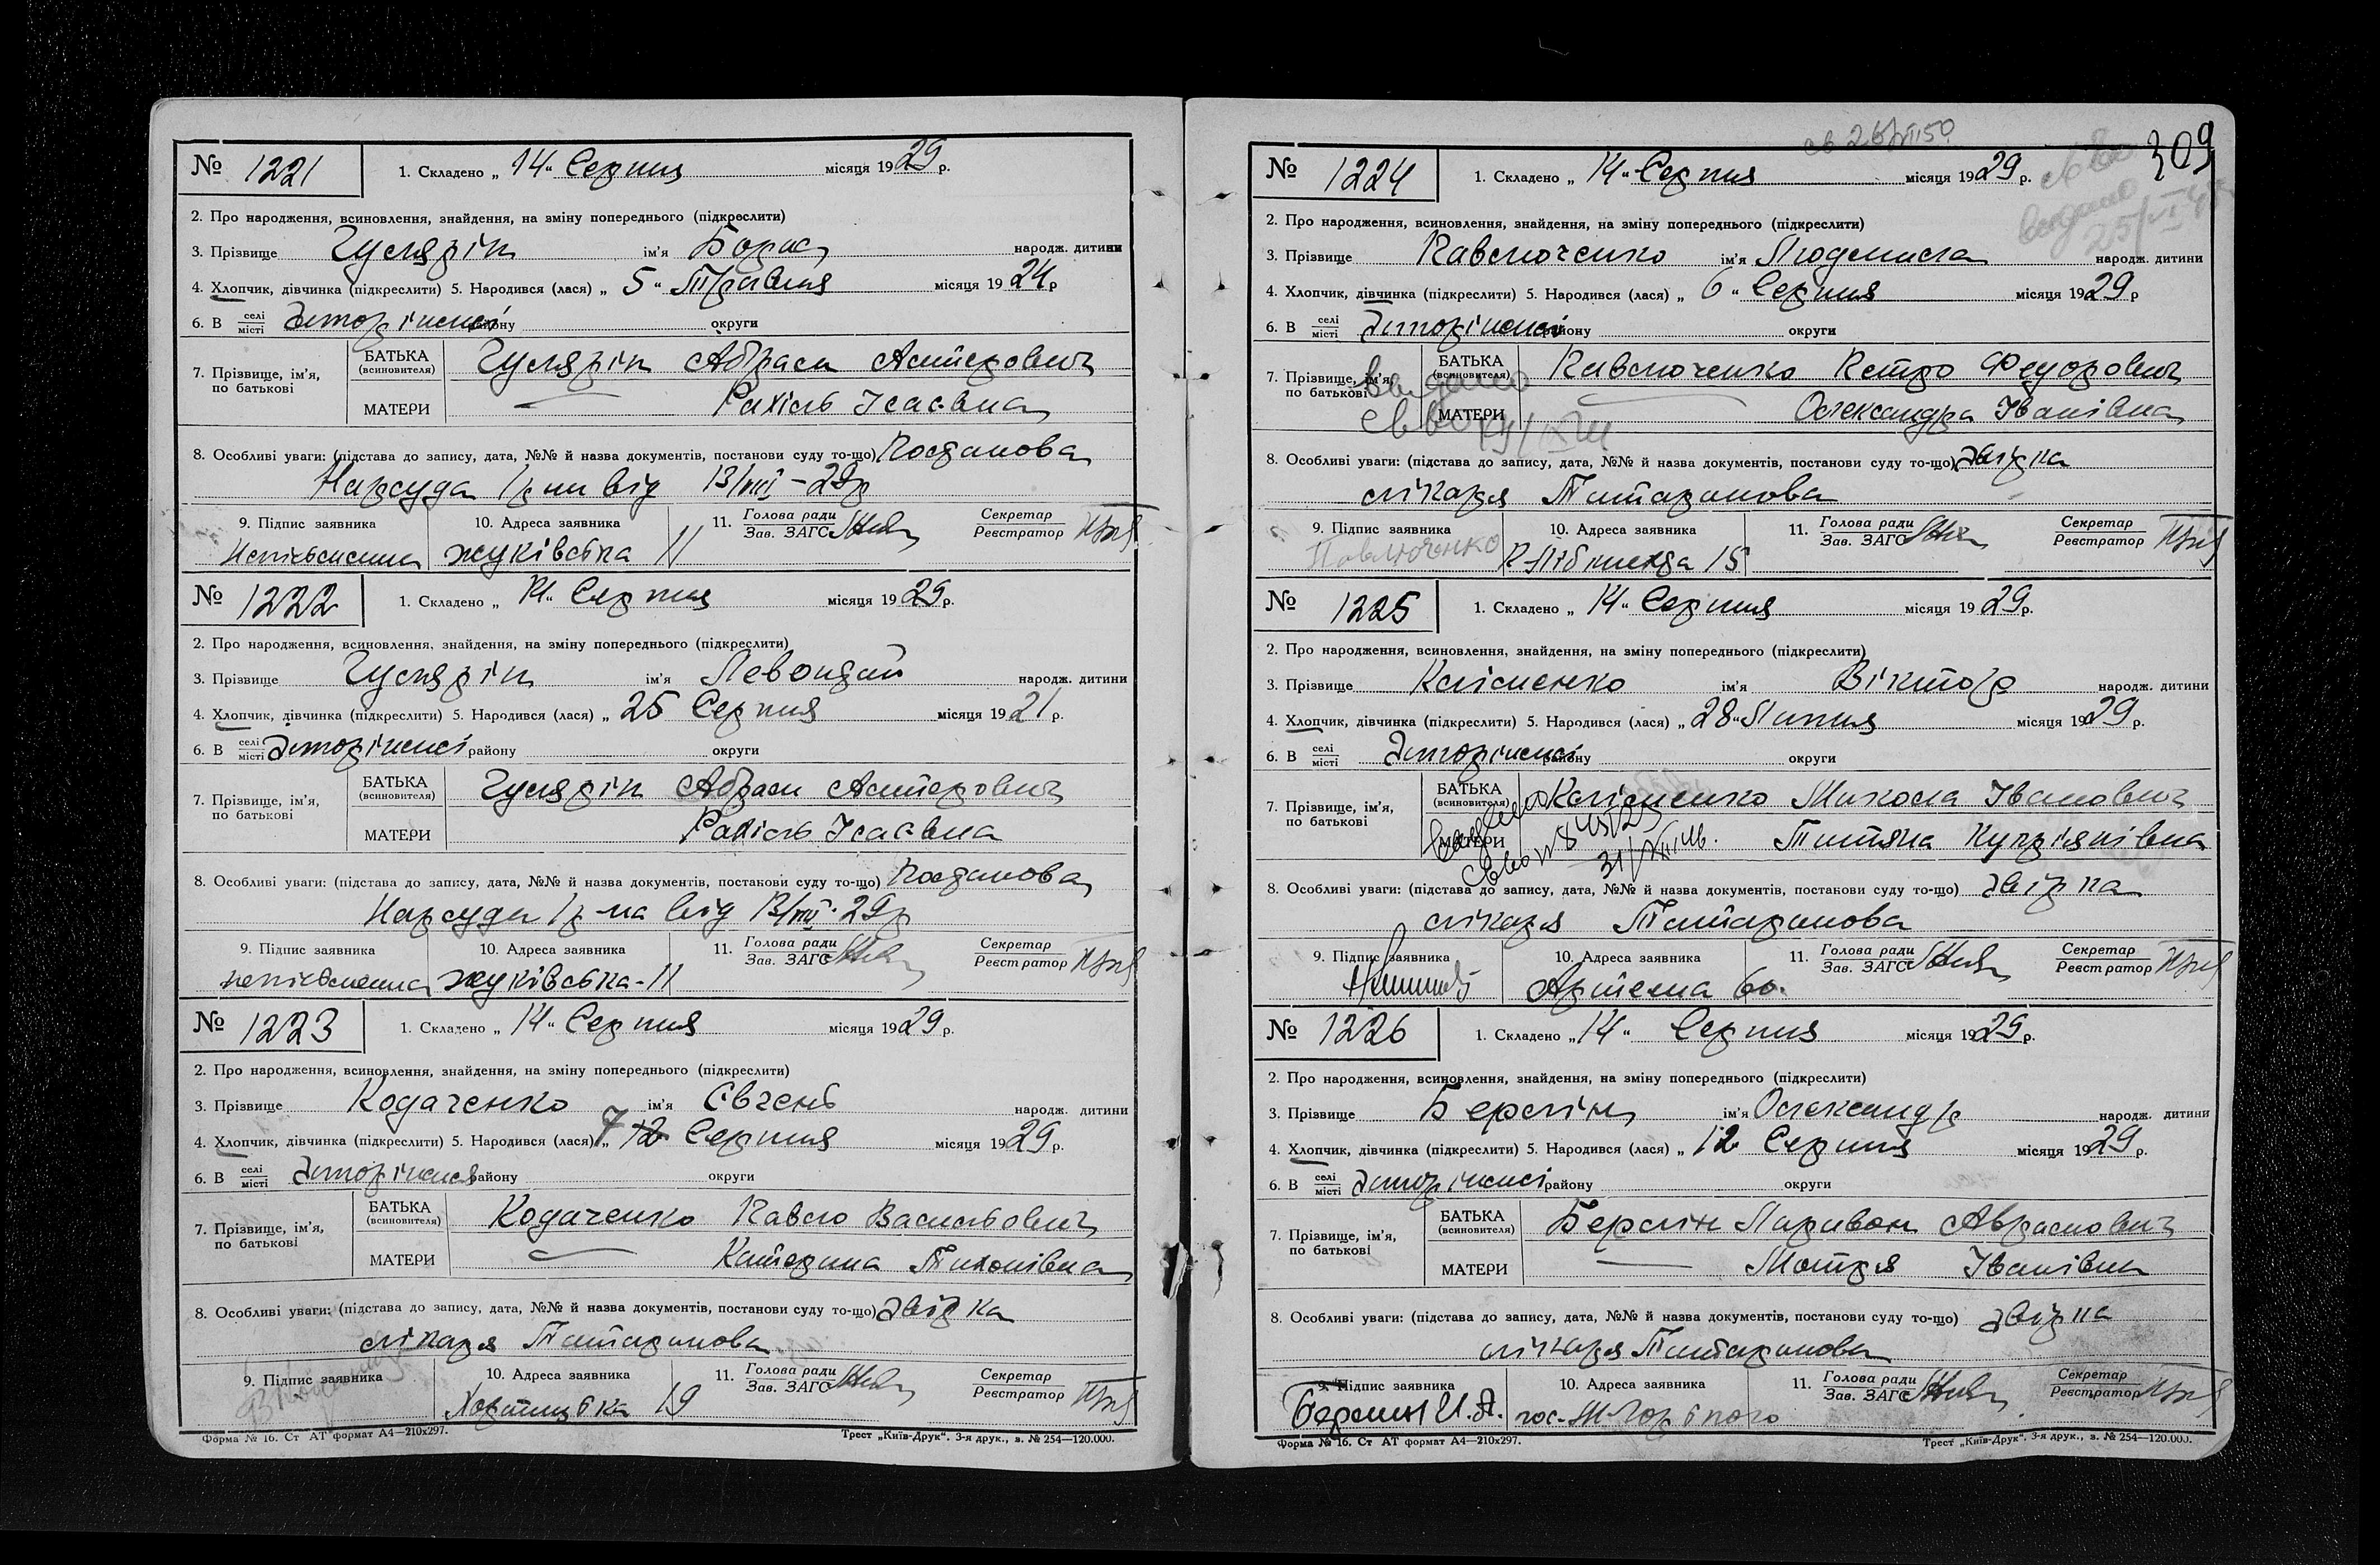 № 1221
1. Складено „ 14 “ Серпня місяця 1929 р.
2. Про народження, всиновлення, знайдення, на зміну попереднього (підкреслити)
3. Прізвище Гуслярін ім'я Борис народж. дитини
4. Хлопчик, дівчинка (підкреслити) 5. Народився (лася) „ 5 “ Травня місяця 1924 р
6. В селі місті Запоріжжі району округи
7. Прізвище, ім'я, по батькові
БАТЬКА (всиновителя) Гуслярін Абрам Астерович
МАТЕРИ — Рахіль Ісаєвна
8. Особливі уваги: (підстава до запису, дата, №№ й назва документів, постанови суду то-що) Постанова
Нарсуда 1 р-ну від 13/VIII-29р
9. Підпис заявника 10. Адреса заявника 11. Голова ради Зав. ЗАГС Секретар Реєстратор
Неписьменна жуківська 11
№ 1222
1. Складено „ 14 “ Серпня місяця 1929 р.
2. Про народження, всиновлення, знайдення, на зміну попереднього (підкреслити)
3. Прізвище Гуслярін ім'я народж. дитини
4. Хлопчик, дівчинка (підкреслити) 5. Народився (лася) „ 25 Серпня місяця 1921 р.
6. В селі місті Запоріжжі району округи
7. Прізвище, ім'я, по батькові
БАТЬКА (всиновителя) Гуслярін Абрам Астерович
МАТЕРИ Рахіль Ісаєвна
8. Особливі уваги: (підстава до запису, дата, №№ й назва документів, постанови суду то-що) Постанова
Нарсуда 1 р-на від 13/VIII-29р
9. Підпис заявника 10. Адреса заявника 11. Голова ради Зав. ЗАГС Секретар Реєстратор
неписьменна жуківська-11
№ 1223
1. Складено „ 14 “ Серпня місяця 1929 р.
2. Про народження, всиновлення, знайдення, на зміну попереднього (підкреслити)
3. Прізвище Кодаченко ім'я Євгень народж. дитини
4. Хлопчик, дівчинка (підкреслити) 5. Народився (лася) „ 7 12 Серпня місяця 1929 р.
6. В селі місті Запоріжжя району округи
7. Прізвище, ім'я, по батькові
БАТЬКА (всиновителя) Кодаченко Павло Васильович
МАТЕРИ — Катерина Тихонівна
8. Особливі уваги: (підстава до запису, дата, №№ й назва документів, постанови суду то-що) Звідка
лікаря Татаранова
9. Підпис заявника 10. Адреса заявника 11. Голова ради Зав. ЗАГС Секретар Реєстратор
Хортицька 19
Форма № 16. Ст АТ формат А4—210х297. Трест „Київ-Друк“. 3-я друк., з. № 254—120.000.
309
св 26/VII 50
видано
25/VI
№ 1224
1. Складено „ 14 “ Серпня місяця 1929 р.
2. Про народження, всиновлення, знайдення, на зміну попереднього (підкреслити)
3. Прізвище Павлюченко ім'я Людмила народж. дитини
4. Хлопчик, дівчинка (підкреслити) 5. Народився (лася) „ 6 “ Серпня місяця 1929 р
6. В селі місті Запоріжжі району округи
7. Прізвище, ім'я, по батькові
БАТЬКА (всиновителя) Павлюченко Петро Федорович
МАТЕРИ — Олександра Іванівна
8. Особливі уваги: (підстава до запису, дата, №№ й назва документів, постанови суду то-що) Звідка
лікаря Татаранова
9. Підпис заявника 10. Адреса заявника 11. Голова ради Зав. ЗАГС Секретар Реєстратор
Павлюченко К-Лібкнехта 15
№ 1225
1. Складено „ 14 “ Серпня місяця 1929 р.
2. Про народження, всиновлення, знайдення, на зміну попереднього (підкреслити)
3. Прізвище Клименко ім'я Віктор народж. дитини
4. Хлопчик, дівчинка (підкреслити) 5. Народився (лася) „ 28 “ Липня місяця 1929 р.
6. В селі місті Запоріжжі району округи
7. Прізвище, ім'я, по батькові
БАТЬКА (всиновителя) Клименко Микола Іванович
МАТЕРИ Титяна Купріянівна
8. Особливі уваги: (підстава до запису, дата, №№ й назва документів, постанови суду то-що) Звідка
лікаря Татаранова
9. Підпис заявника 10. Адреса заявника 11. Голова ради Зав. ЗАГС Секретар Реєстратор
Артема 60.
№ 1226
1. Складено „ 14 “ Серпня місяця 1929 р.
2. Про народження, всиновлення, знайдення, на зміну попереднього (підкреслити)
3. Прізвище Берлін ім'я Олександр народж. дитини
4. Хлопчик, дівчинка (підкреслити) 5. Народився (лася) „ 12 Серпня місяця 1929 р.
6. В селі місті Запоріжжі району округи
7. Прізвище, ім'я, по батькові
БАТЬКА (всиновителя) Берлін Ларивон Аврамович
МАТЕРИ — Мотря Іванівна
8. Особливі уваги: (підстава до запису, дата, №№ й назва документів, постанови суду то-що) Звідка
лікаря Татаранова
9. Підпис заявника 10. Адреса заявника 11. Голова ради Зав. ЗАГС Секретар Реєстратор
Берлин И.А.
Форма № 16. Ст АТ формат А4—210х297. Трест „Київ-Друк“. 3-я друк., з. № 254—120.000.